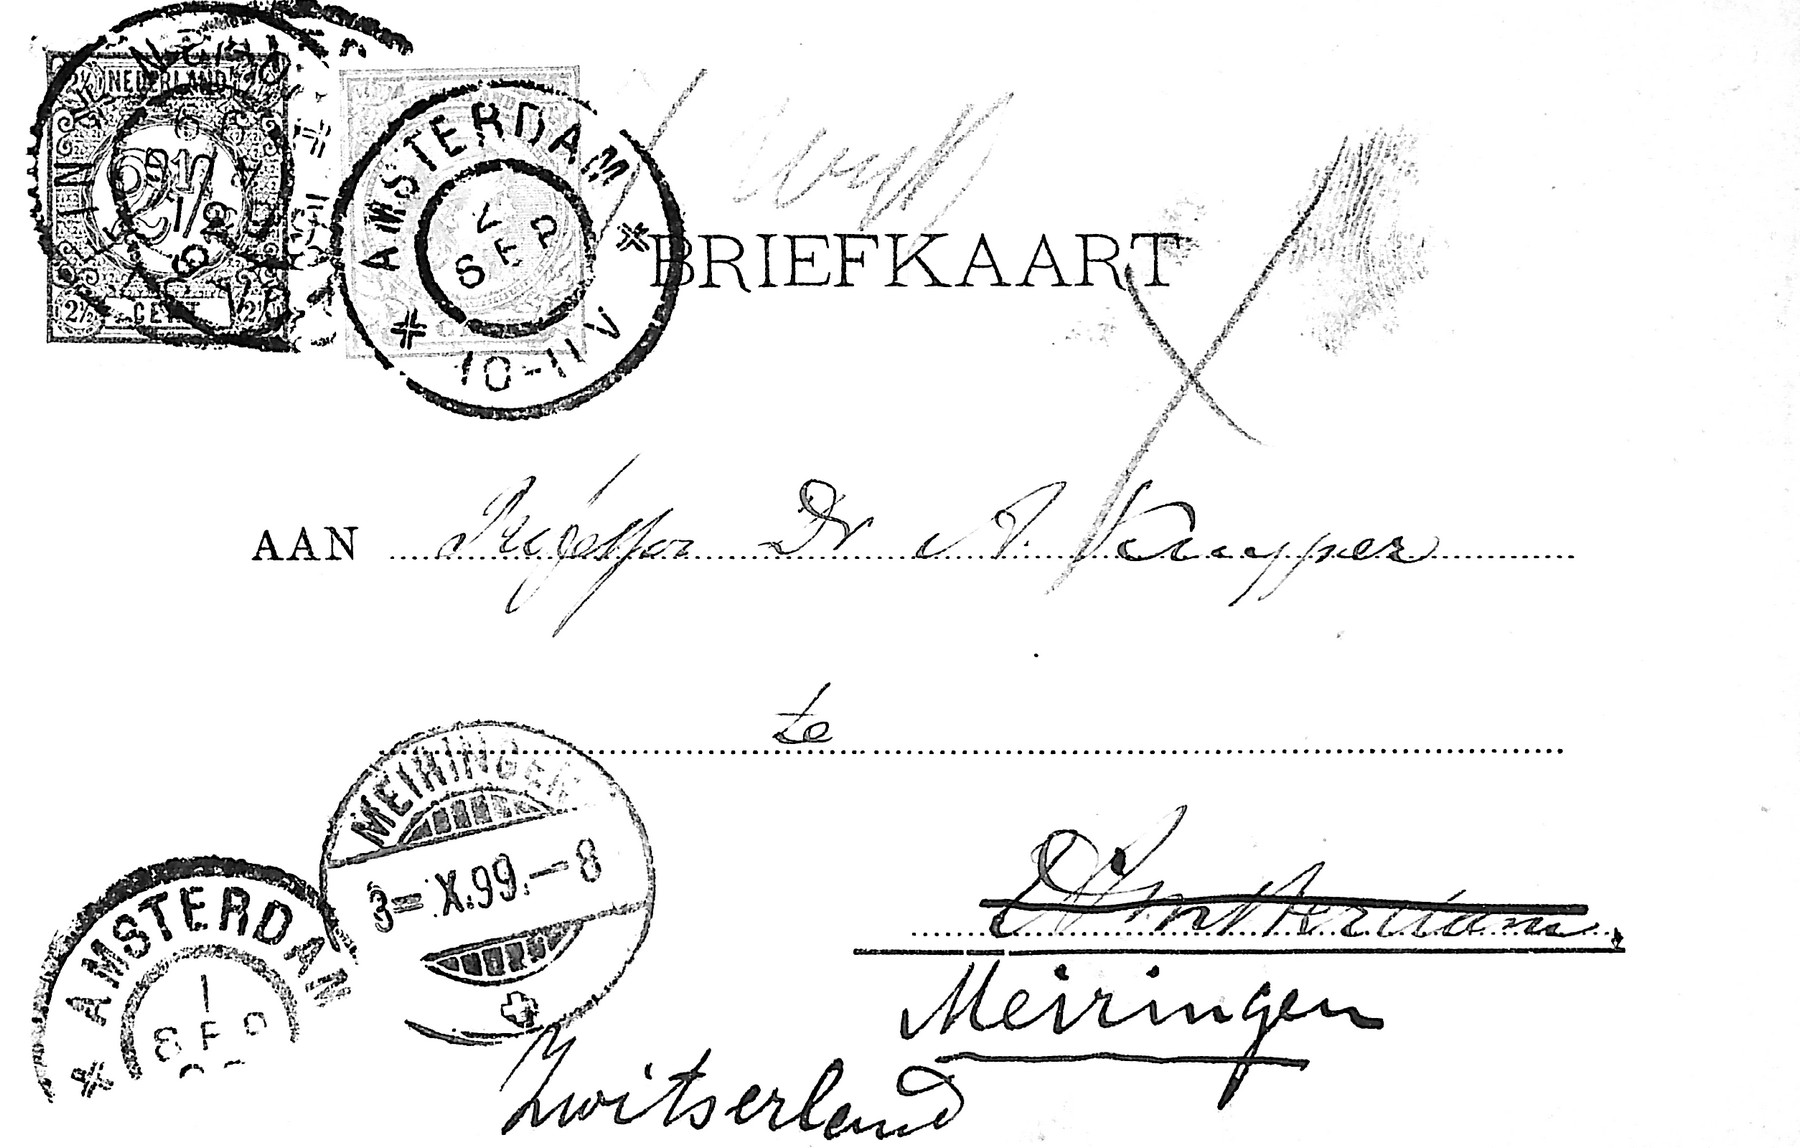 NEDERLAND
2½
2½ CENT 2½
AMSTERDAM
2
SEP
10-11 V
BRIEFKAART
AAN Professor Dr A. Kuyper
te
Amsterdam.
Meiringen
Zwitserland
MEIRINGEN
3 = . X. 99. – 8
AMSTERDAM
1
SEP